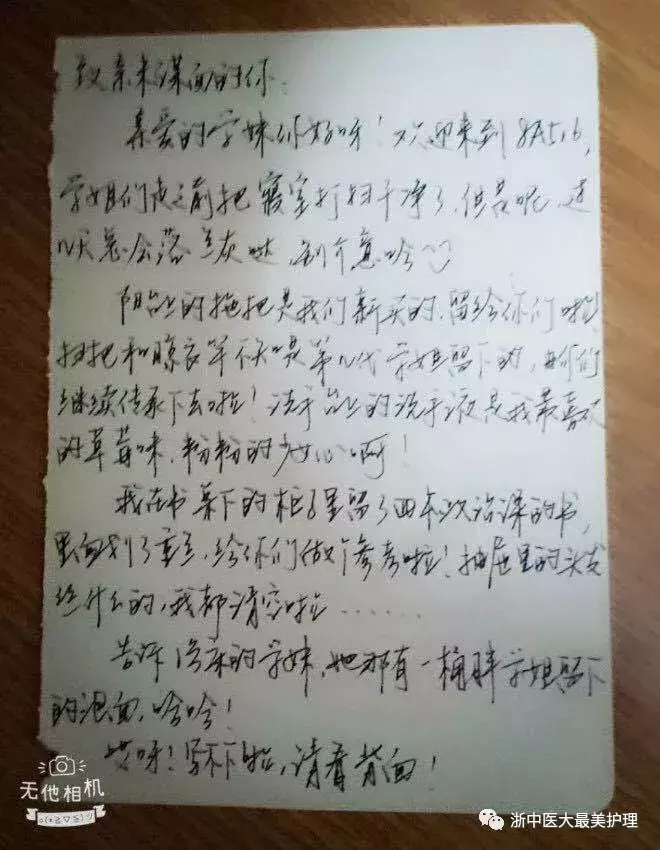 致素未谋面的你:
亲爱的学妹你好呀!欢迎来到8A516,
学姐们走之前把寝室打扫干净了,但是呢,这
几天总会落点灰哒,别介意哈
阳台上的拖把是我们新买的,留给你们啦!
扫把和晾衣竿不知是第几代学姐留下的,由你们
继续传承下去啦!洗手台上的洗手液是我最喜欢
的草莓味,粉粉的少女心啊!
我在书桌下的柜子里留了四本政治课的书,
里面划了重点,给你们做个参考啦!抽屉里的头发
丝什么的,我都清空啦……
告诉 床的学妹,她那有一桶胖学姐留下
的泡面,哈哈!
哎呀!写不下啦,请看背面!
无他相机
浙中医大最美护理